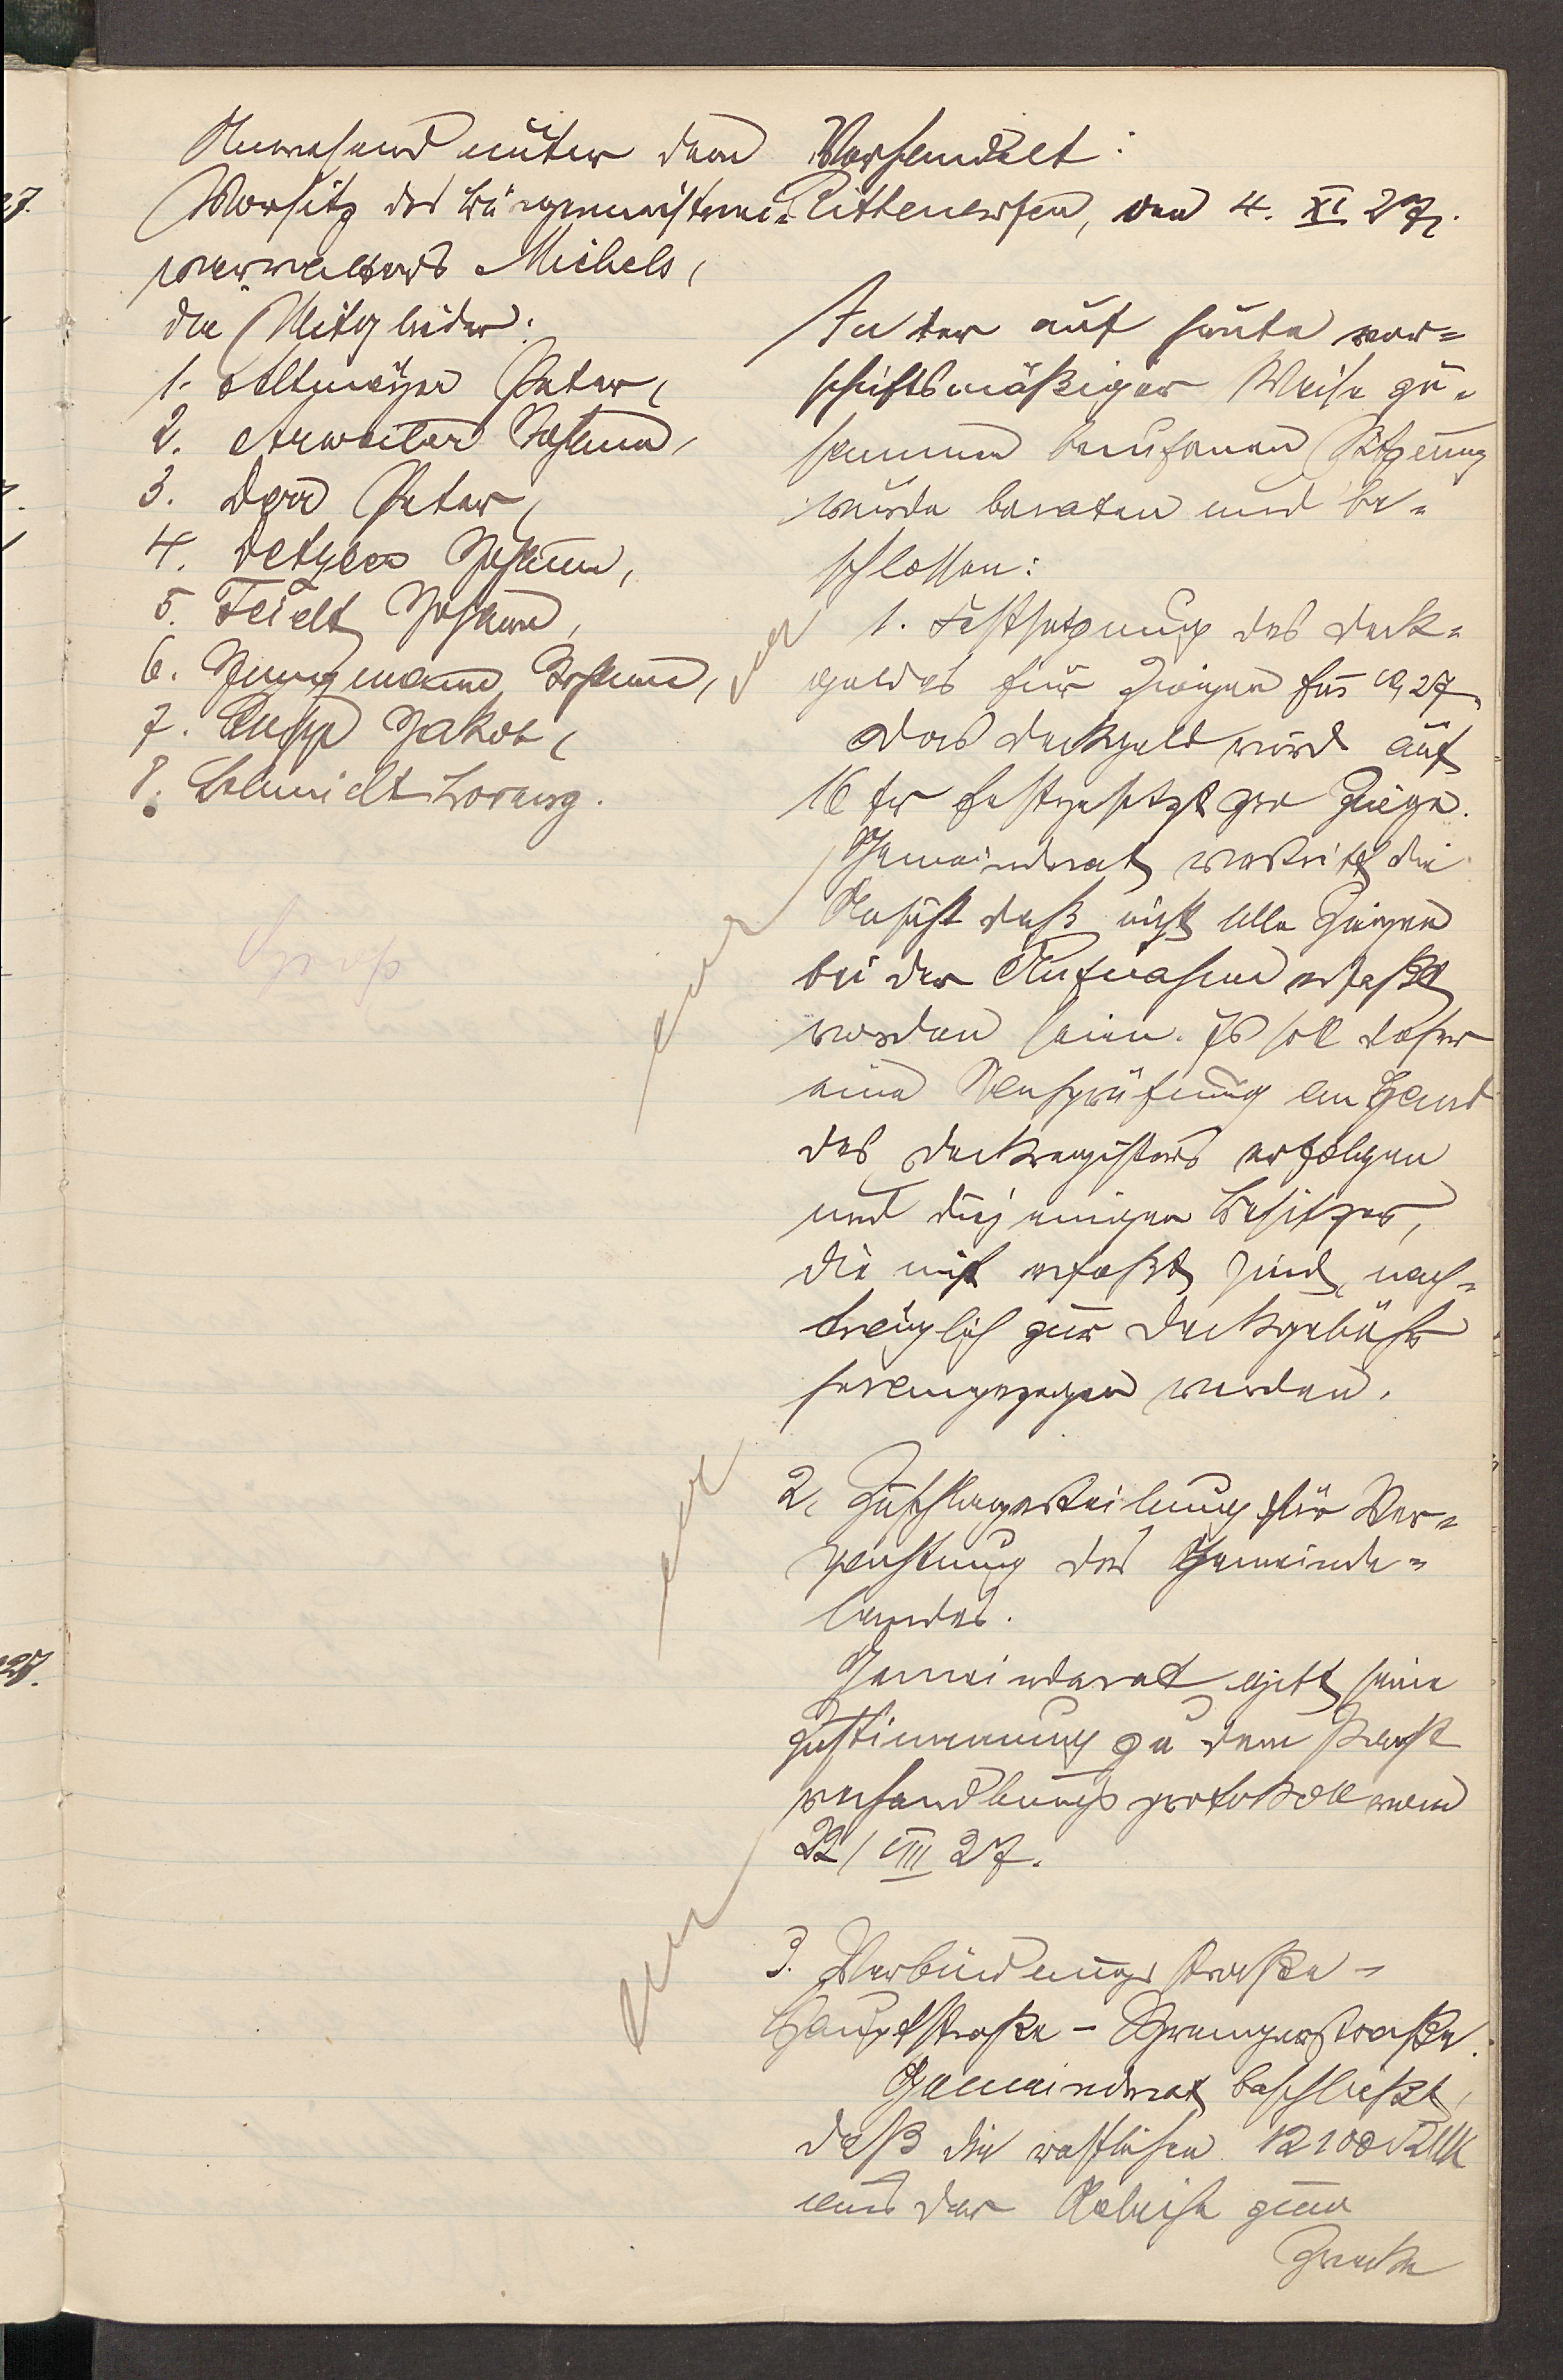 Anwesend unter dem
Vorsitz des Bürgermeisterei-
verwalters Michels,
die Mitglieder:
1. Altmeyer Peter,
2. Arweiler Johann,
3. Dörr Peter,
4. Detgen Johann,
5. Feidt Johann,
6. Jungmann Johann,
7. Jakob,
8. Schmidt Lorenz.
Verhandelt:
Püttlingen, den 4. XI 27.
In der auf heute vor=
schriftsmäßiger Weise zu=
sammen berufenen Sitzung
wurde beraten und be=
schlossen:
1. Festsetzung des Deck=
geldes für Ziegen für 1927.
Das Deckgeld wird auf
16 fr festgesetzt pro Ziege.
Gemeinderat vertritt die
Ansicht daß nicht alle Ziegen
bei der Aufnahme erfaßt
worden seien. Es soll daher
eine Nachprüfung an Hand
des Deckregisters erfolgen
und diejenigen Besitzer,
die nicht erfaßt sind, nach=
träglich zur Deckgebühr
herangezogen werden.
2. Zuschlagserteilung für Ver=
pachtung des Gemeinde=
landes.
Gemeinderat gibt seine
Zustimmung zu dem Pacht
verhandlungsprotokoll vom
22/ VIII 27.
3. Verbindungsstraße -
Hauptstraße - Sprengerstraße.
Gemeinderat beschließt,
daß die restlichen 12100 RMk
aus der Anleihe zum
Zwecke